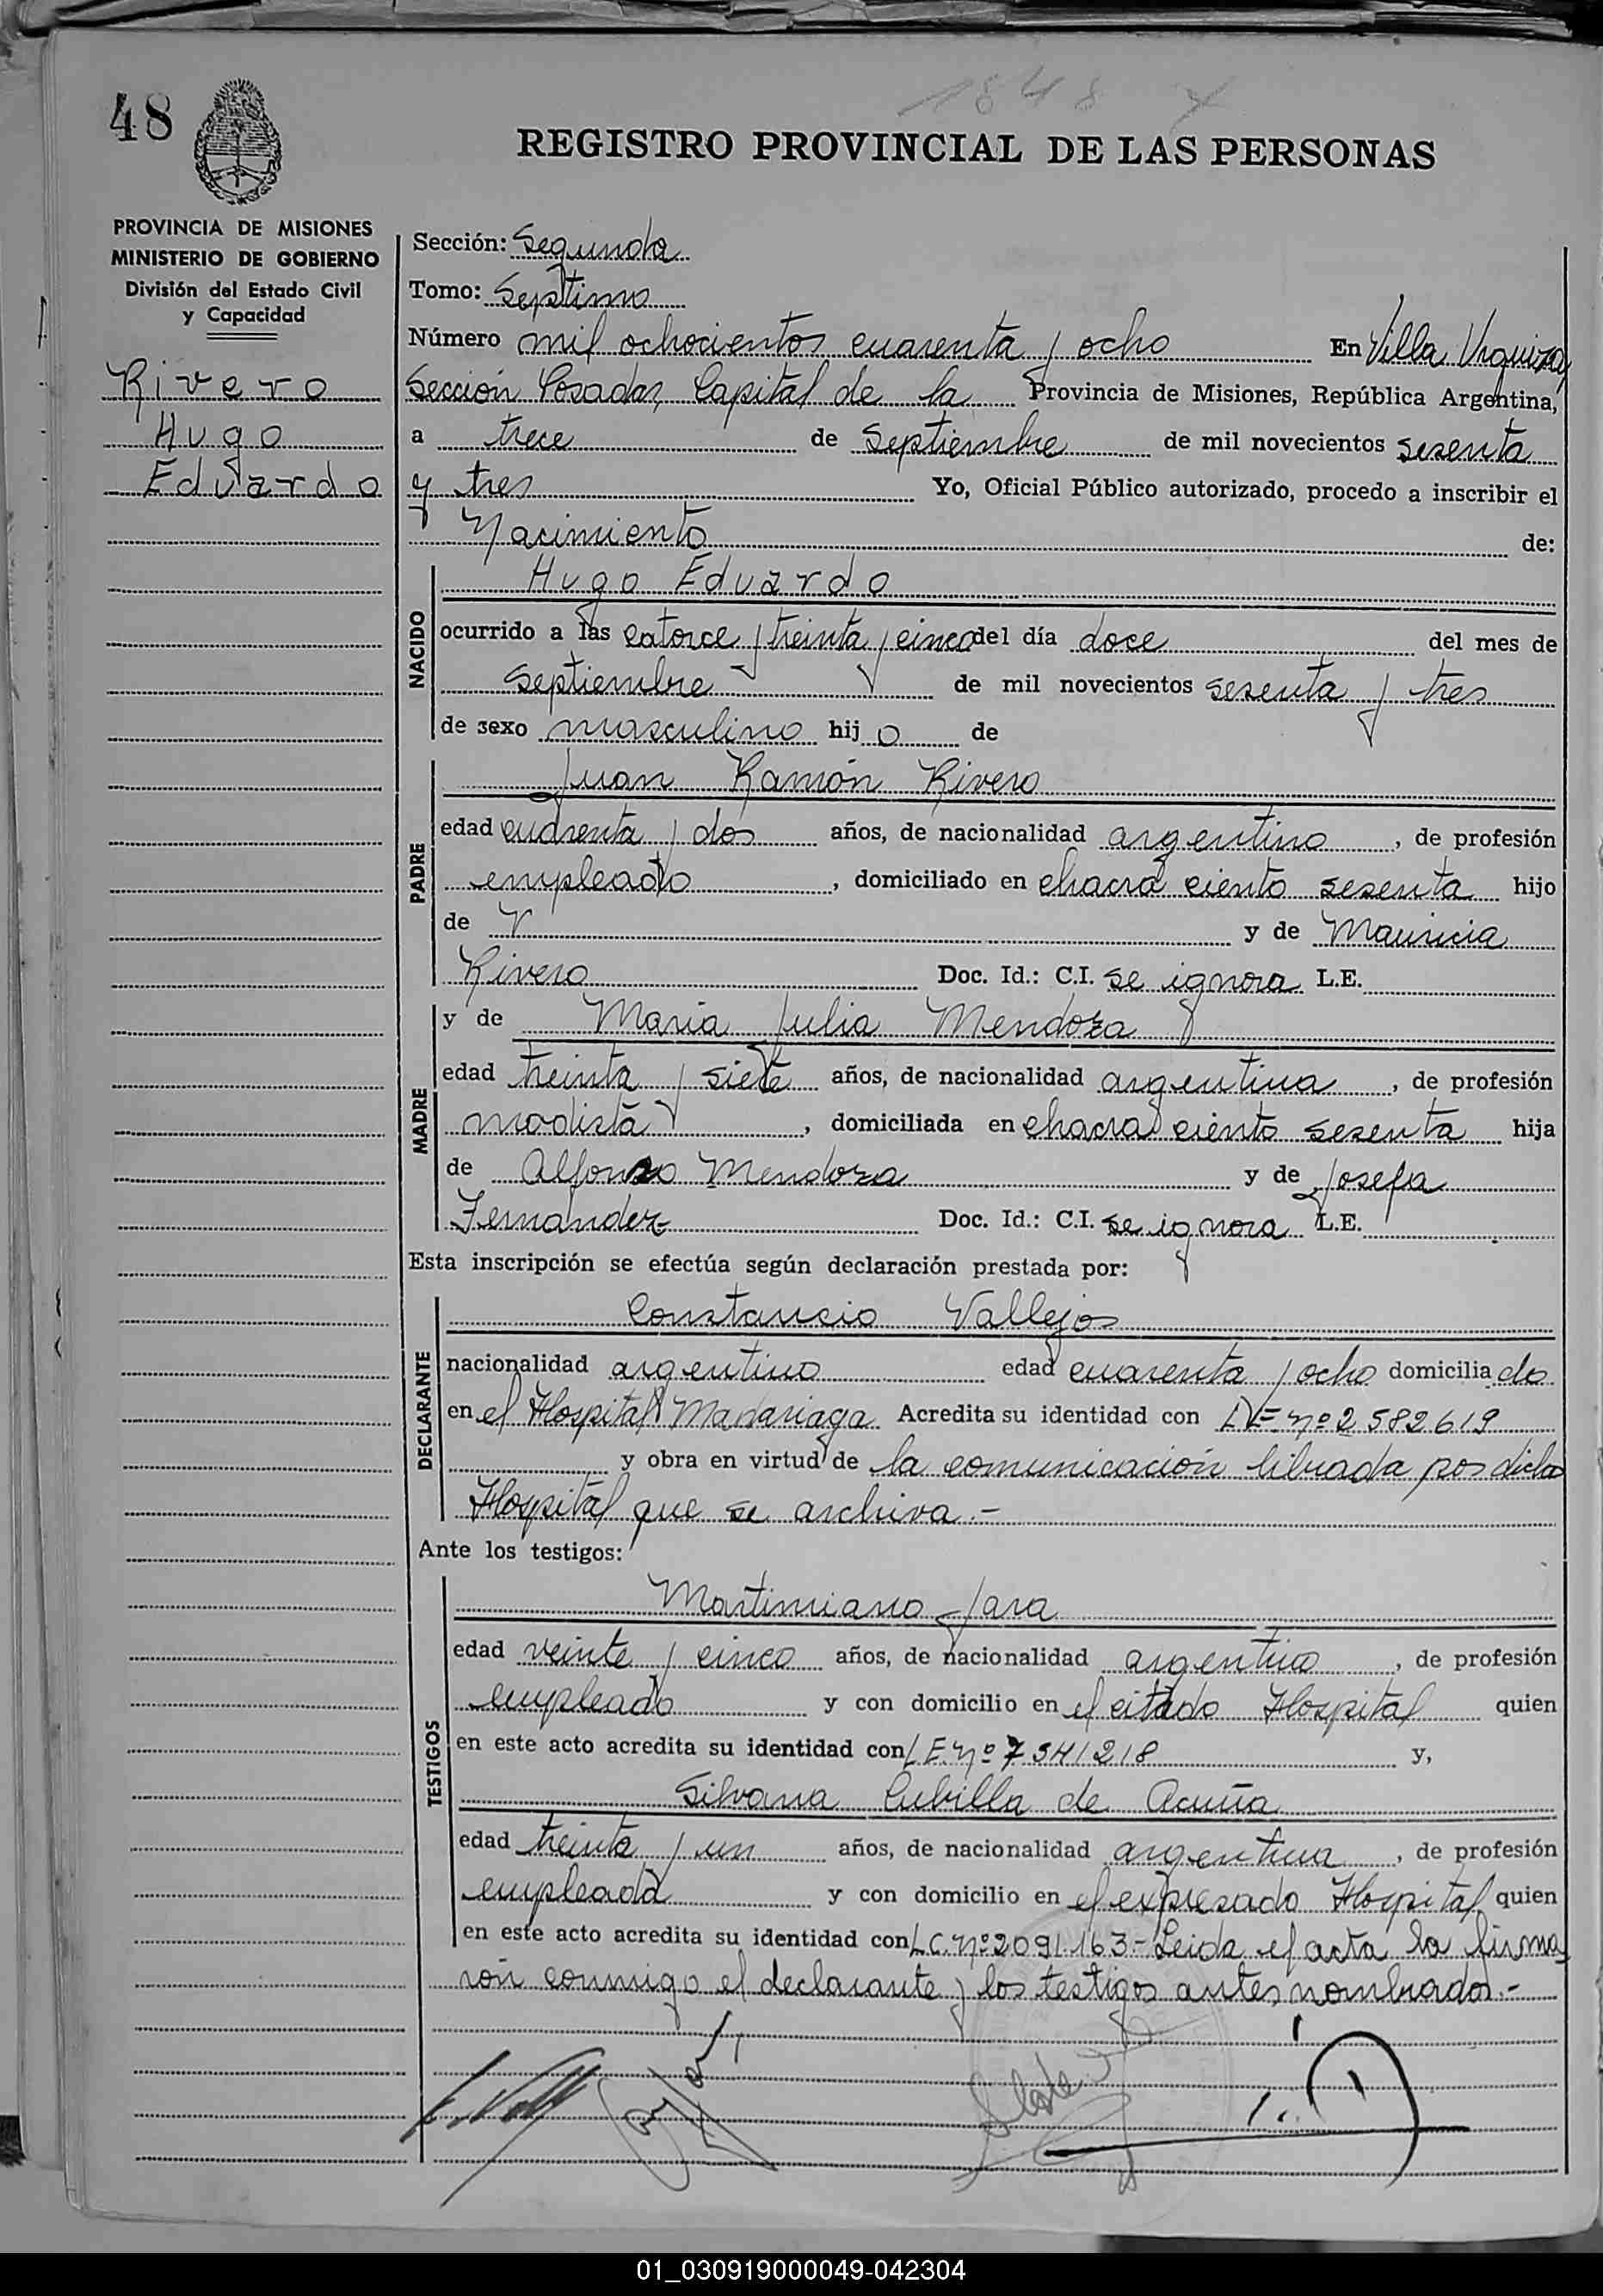 48
1848
REGISTRO PROVINCIAL DE LAS PERSONAS
PROVINCIA DE MISIONES
MINISTERIO DE GOBIERNO
División del Estado Civil
y Capacidad
Rivero
Hugo
Eduardo
Sección: Segunda
Tomo: Septimo
Número mil ochocientos cuarenta y ocho En Villa Urquiza,
Sección Posadas, Capital de la Provincia de Misiones, República Argentina,
a trece de Septiembre de mil novecientos sesenta
y tres Yo, Oficial Público autorizado, procedo a inscribir el
Nacimiento de:
NACIDO
Hugo Eduardo
ocurrido a las catorce y treinta y cinco del día doce del mes de
septiembre de mil novecientos sesenta y tres
de sexo masculino hijo de
PADRE
Juan Ramón Rivero
edad cuarenta y dos años, de nacionalidad argentino, de profesión
empleado, domiciliado en chacra ciento sesenta hijo
de y de Mauricia
Rivero Doc. Id.: C.I. se ignora L.E.
MADRE
y de Maria Julia Mendoza
edad treinta y siete años, de nacionalidad argentina, de profesión
modista, domiciliada en chacra ciento sesenta hija
de Alfonso Mendoza y de Josefa
Fernandez Doc. Id.: C.I. se ignora L.E.
Esta inscripción se efectúa según declaración prestada por:
DECLARANTE
Constancio Vallejos
nacionalidad argentino edad cuarenta y ocho domiciliado
en el Hospital Madariaga Acredita su identidad con nº 2582619
y obra en virtud de la comunicación librada por dicho
Hospital que se archiva.-
Ante los testigos:
TESTIGOS
Martimiano Jara
edad veinte y cinco años, de nacionalidad argentino, de profesión
empleado y con domicilio en el citado Hospital quien
en este acto acredita su identidad con L.E. nº 7541218 y,
Silvana Cubilla de Acuña
edad treinta y un años, de nacionalidad argentina, de profesión
empleada y con domicilio en el expresado Hospital quien
en este acto acredita su identidad con L.C. nº 2091.163.- Leida el acta la firma
ron conmigo el declarante y los testigos antes nombrados.-
01_030919000049-042304